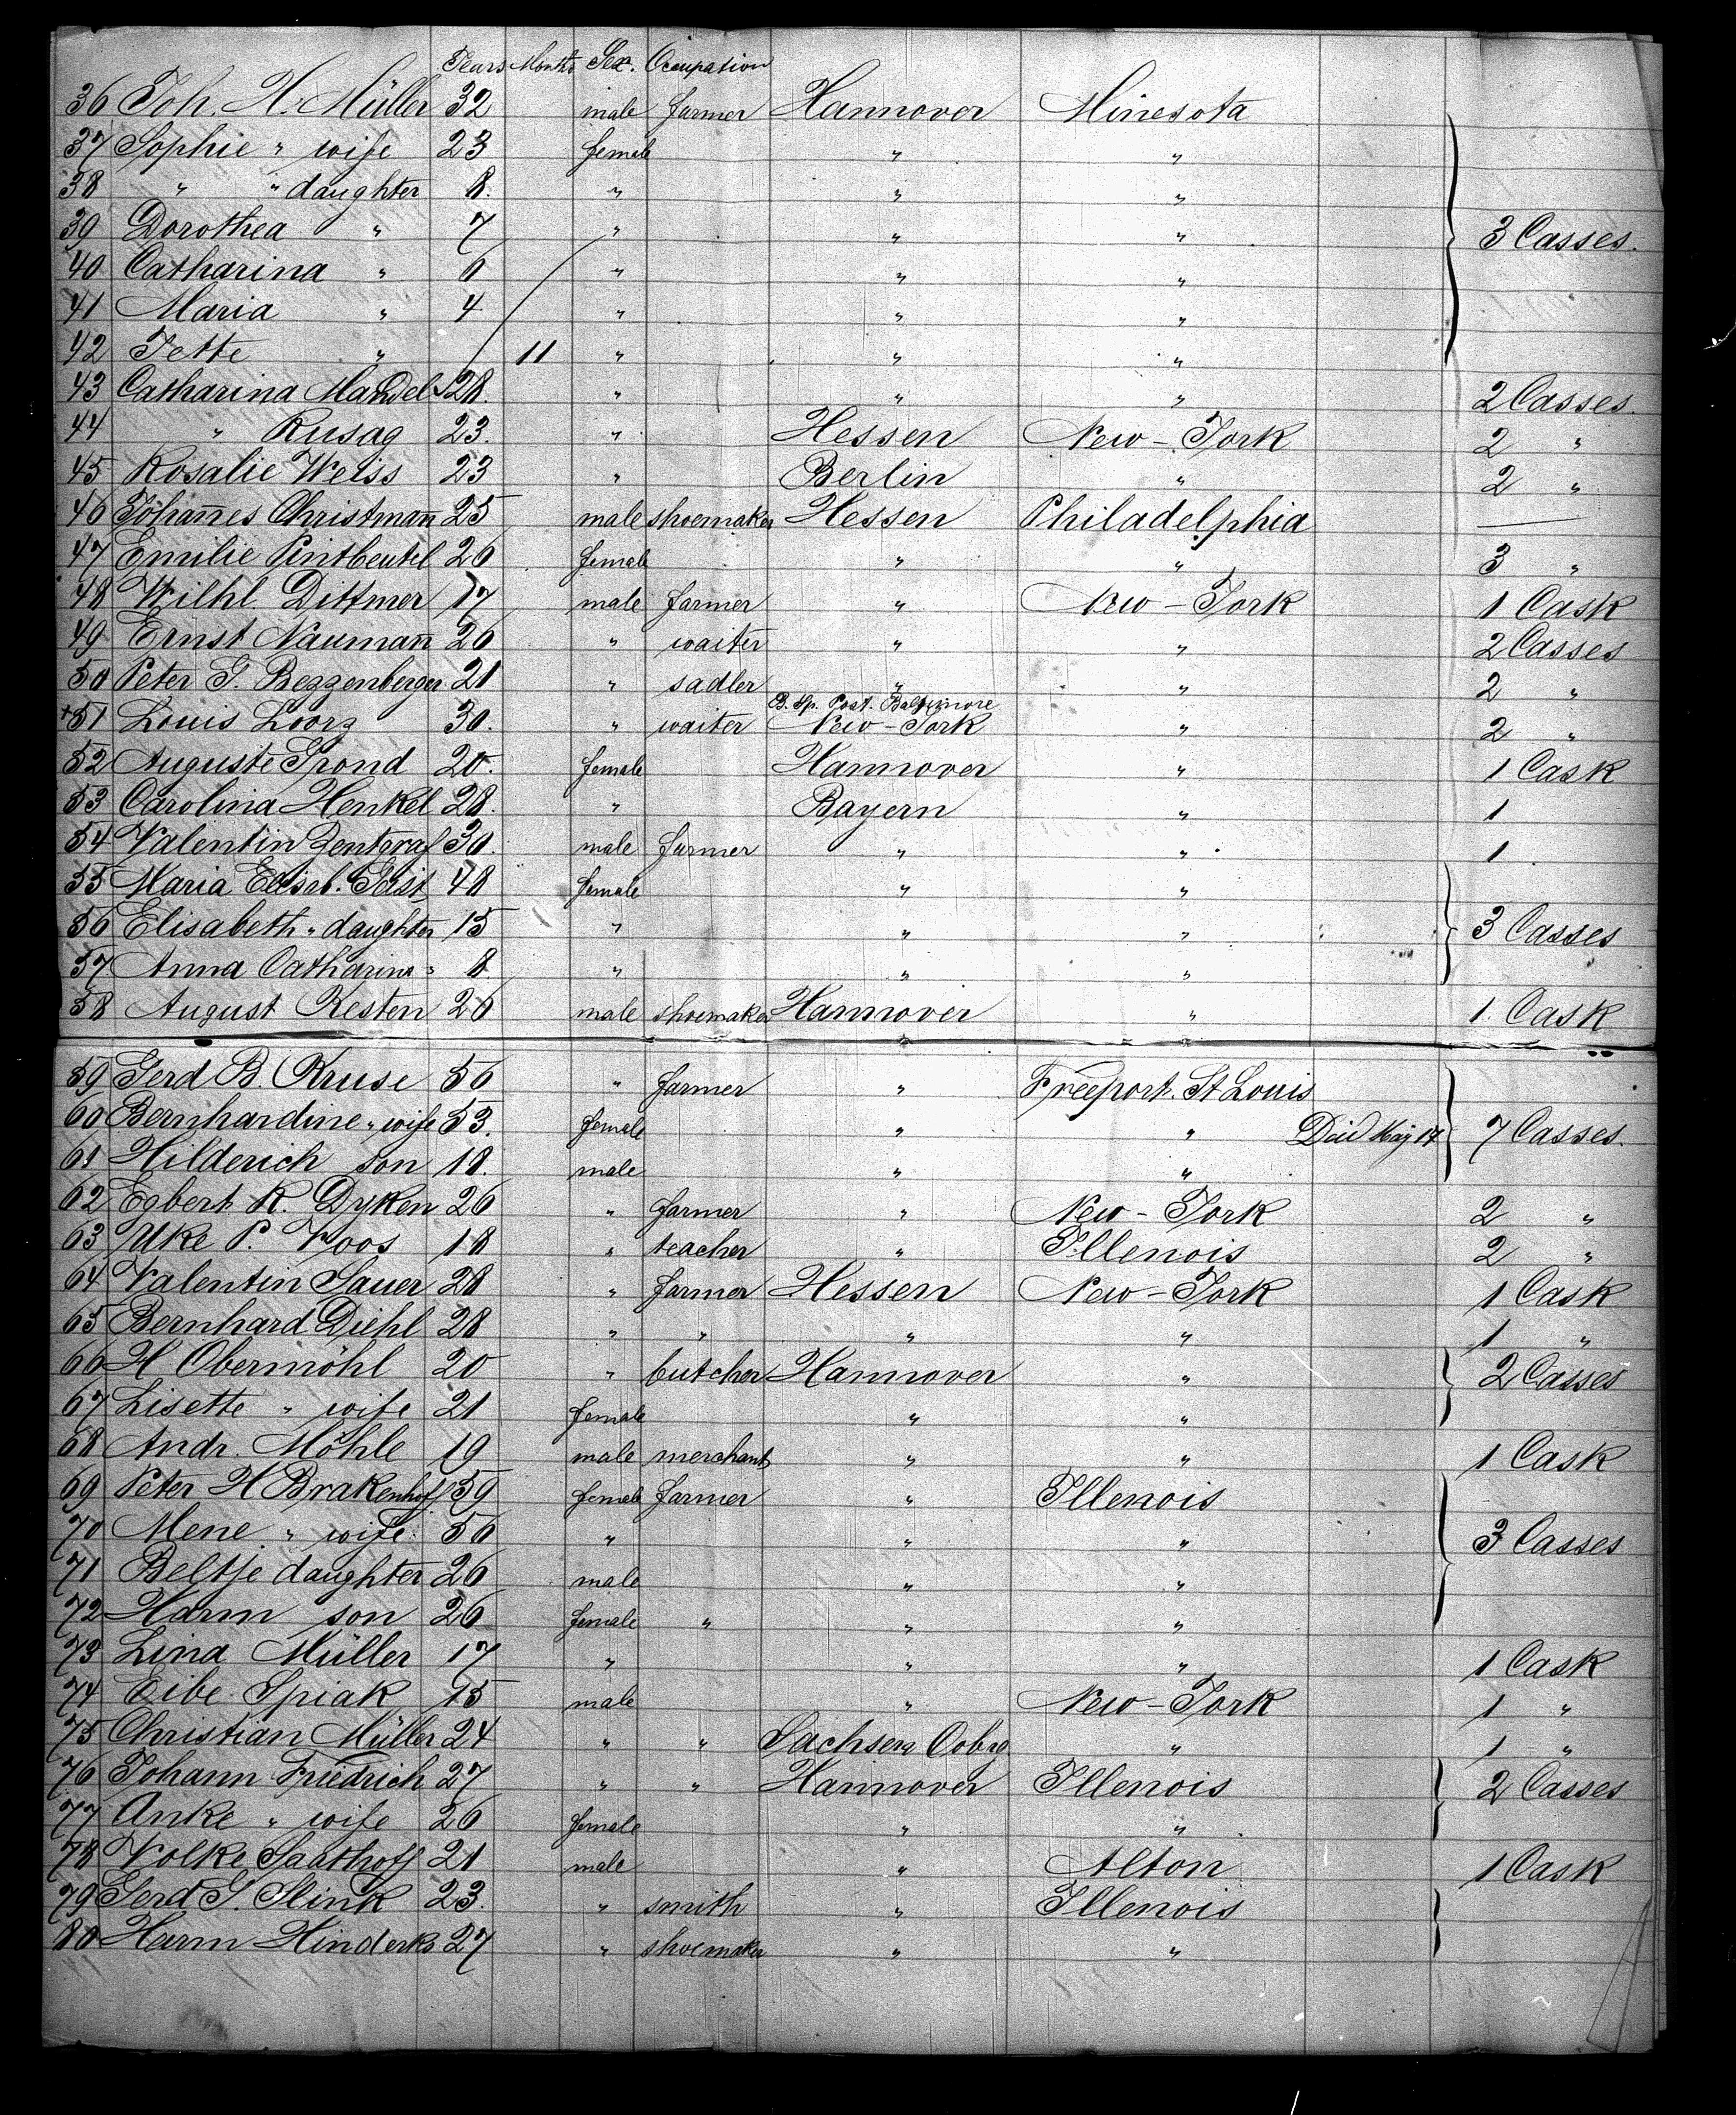 Years Months Sex. Occupation
36 Joh. H. Müller 32 male farmer Hannover Minesota
37 Sophie " wife 23 female " "
38 " " daughter 8. " " "
39 Dorothea " 7 " " " 3 Casses.
40 Catharina " 6 " " "
41 Maria " 4 " " "
42 Jette " / 11 " " "
43 Catharina 28. " " " 2 Casses.
44 " Rusag 23. " Hessen New-York 2 "
45 Rosalie Weiss 23 " Berlin " 2 "
46 Johan̄es Christman̄ 25 male shoemaker Hessen Philadelphia —
47 Emilie Pintbeutel 26 female " " 3 "
48 Wilhl. Dittmer 17 male farmer " New-York 1 Cask
49 Ernst Nauman̄ 26 " waiter " " 2 Casses
50 Peter G. Bezzenberger 21 " sadler " " 2 "
B. Sp. Post. Baltimore
+51 Louis Loorz 30. " waiter New-York " 2 "
52 Auguste Grond 20. female Hannover " 1 Cask
53 Carolina Henkel 28. " Bayern " 1
54 Valentin Zentgraf 30. male farmer " " 1
55 Maria Elisab. Geist 48 female " "
56 Elisabeth " daughter 15 " " " 3 Casses
57 Anna Catharina " 8 " " "
58 August Kesten 26 male shoemaker Hannover " 1. Cask
59 Gerd B. Kruse 56 " farmer " Freeport. St Louis
60 Bernhardine " wife 53. female " " Died May 17 7 Casses.
61 Hilderich son 18. male " "
62 Egbert R. Dyken 26 " farmer " New-York 2 "
63 Uke P. Voos 18 " teacher " Illenois 2 "
64 Valentin Sauer 28 " farmer Hessen New-York 1 Cask
65 Bernhard Diehl 28 " " " " 1 "
66 H Obermöhl 20 " butcher Hannover " 2 Casses
67 Lisette " wife 21 female " "
68 Andr. Möhle 19 male merchant " " 1 Cask
69 Peter H Brakenhoff 59 female farmer " Illenois
70 Mene " wife. 56 " " " 3 Casses
71 Beltje daughter 26 male " "
72 Harm son 26 female " " "
73 Lina Müller 17 " " " 1 Cask
74 Eibe Spiak 15 male " New-York 1 "
75 Christian Müller 24 " " Sachsen Cobrg " 1 "
76 Johann Friedrich 27 " " Hannover Illenois 2 Casses
77 Anke " wife 26 female " "
78 Volke Saathoff 21 male " Alton 1 Cask
79 Gerd G. Slink 23. " smith " Illenois
80 Harm Hinderks 27 " shoemaker " "